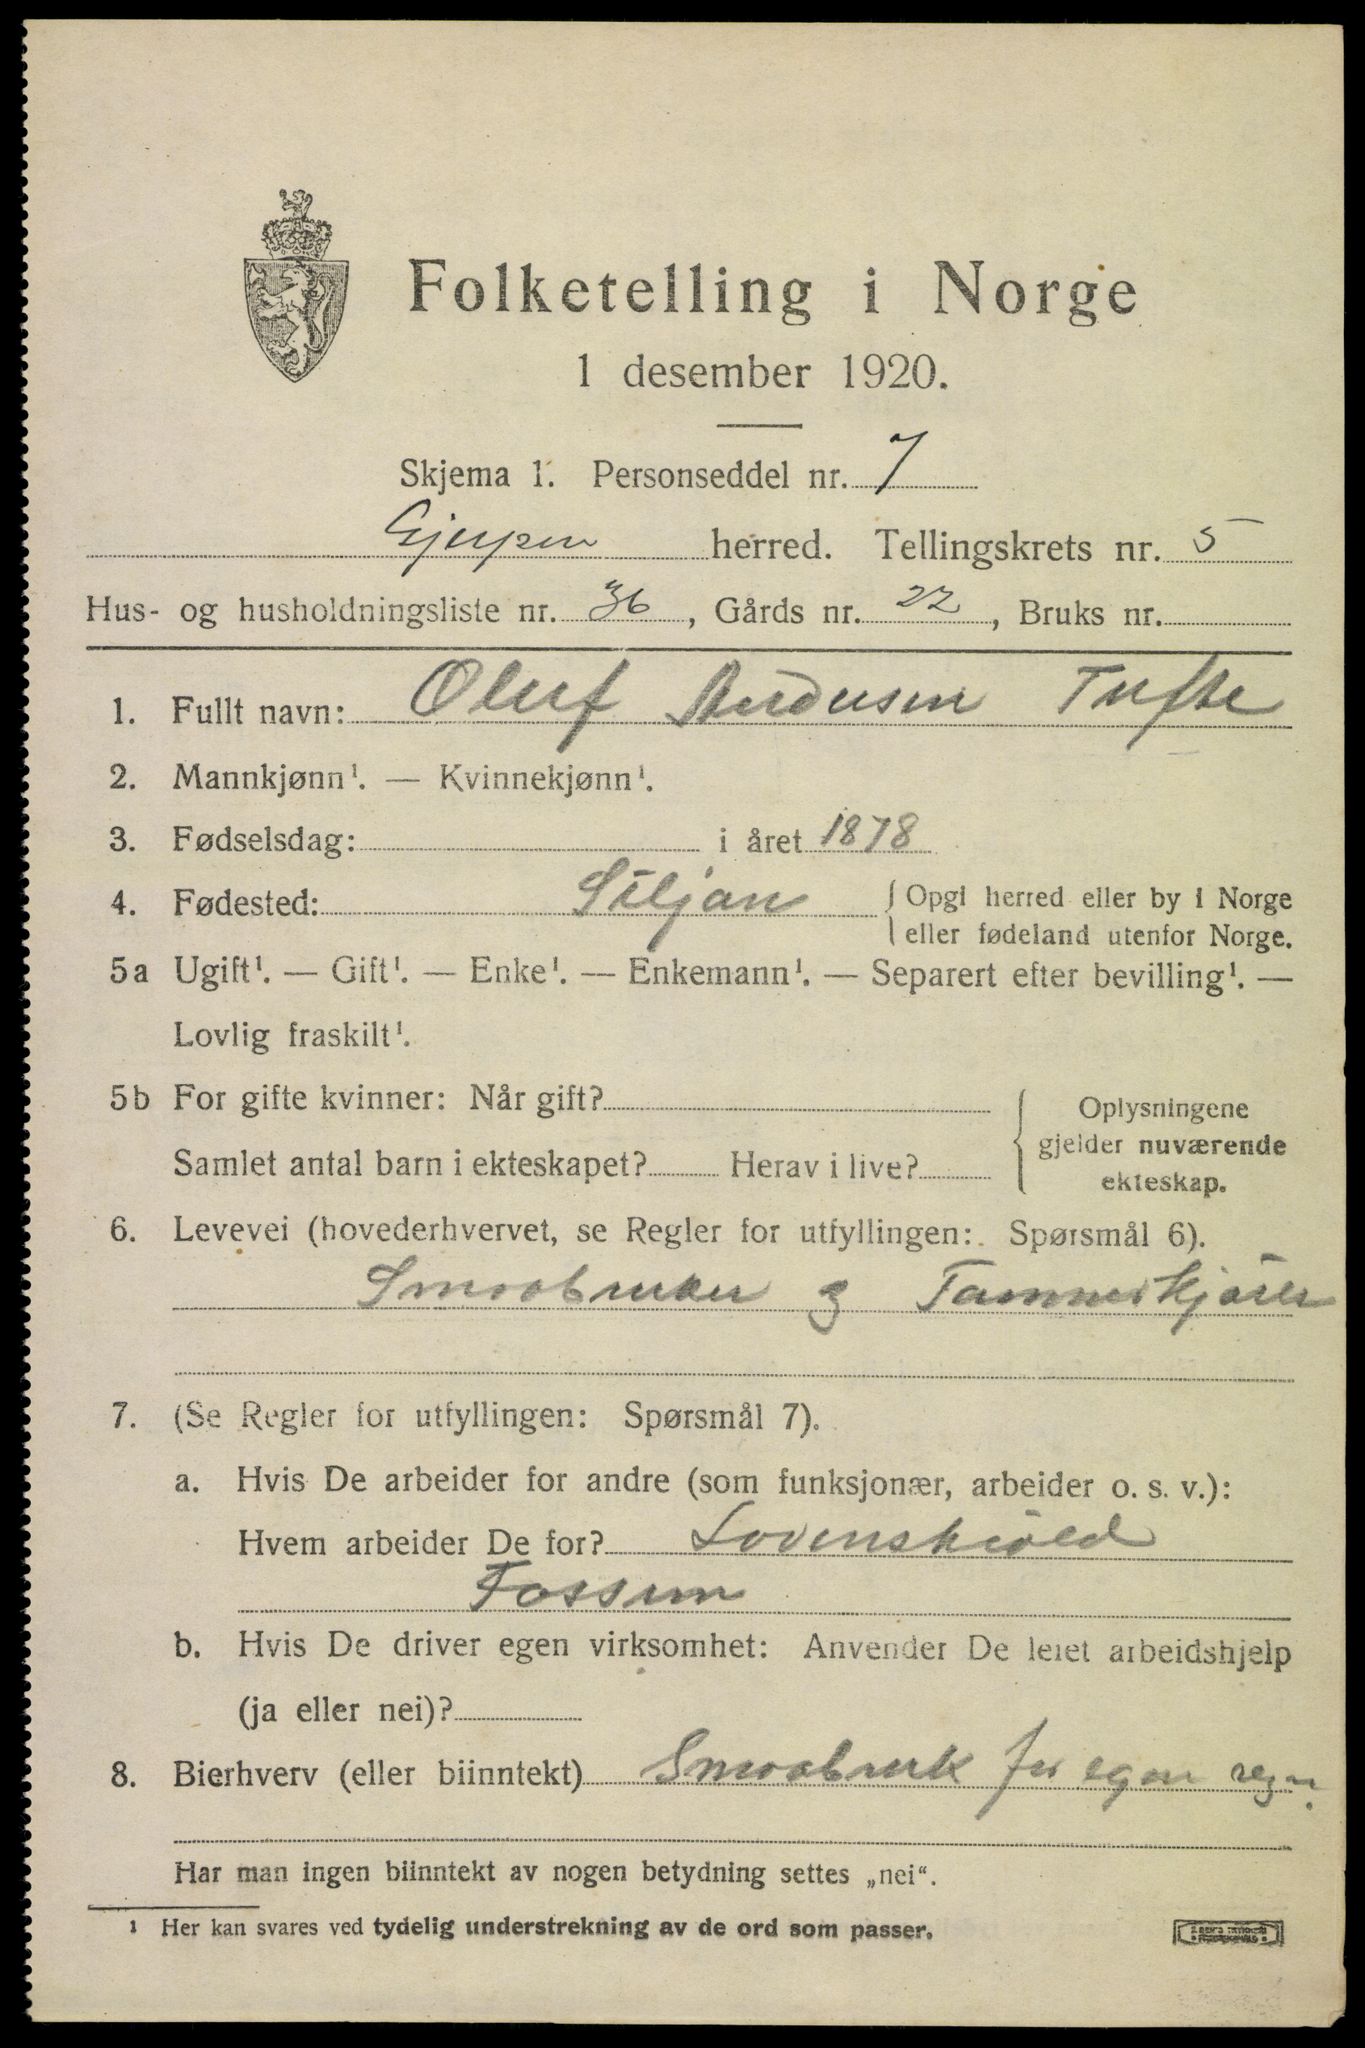 Folketelling i Norge
1 desember 1920.
Skjema 1. Personseddel nr. 7
Gjerpen herred. Tellingskrets nr. 5
Hus- og husholdningsliste nr. 36, Gårds nr. 22, Bruks nr.
1. Fullt navn: Oluf Andersen Tufte
2. Mannkjønn¹. — Kvinnekjønn¹.
3. Fødselsdag: i året 1878
4. Fødested: Siljan { Opgi herred eller by i Norge
eller fødeland utenfor Norge.
5a Ugift¹. — Gift¹. — Enke¹. — Enkemann¹. — Separert efter bevilling¹. —
Lovlig fraskilt¹.
5b For gifte kvinner: Når gift?
Samlet antal barn i ekteskapet? Herav i live?
Oplysningene
gjelder nuværende
ekteskap.
6. Levevei (hovederhvervet, se Regler for utfyllingen: Spørsmål 6).
Smaabruker og Tømmerkjører
7. (Se Regler for utfyllingen: Spørsmål 7).
a. Hvis De arbeider for andre (som funksjonær, arbeider o. s. v.):
Hvem arbeider De for? Lovenskiold
Fossum
b. Hvis De driver egen virksomhet: Anvender De leiet arbeidshjelp
(ja eller nei)?
8. Bierhverv (eller biinntekt) Smaabruk for egen regn.
Har man ingen biinntekt av nogen betydning settes „nei“.
¹ Her kan svares ved tydelig understrekning av de ord som passer.